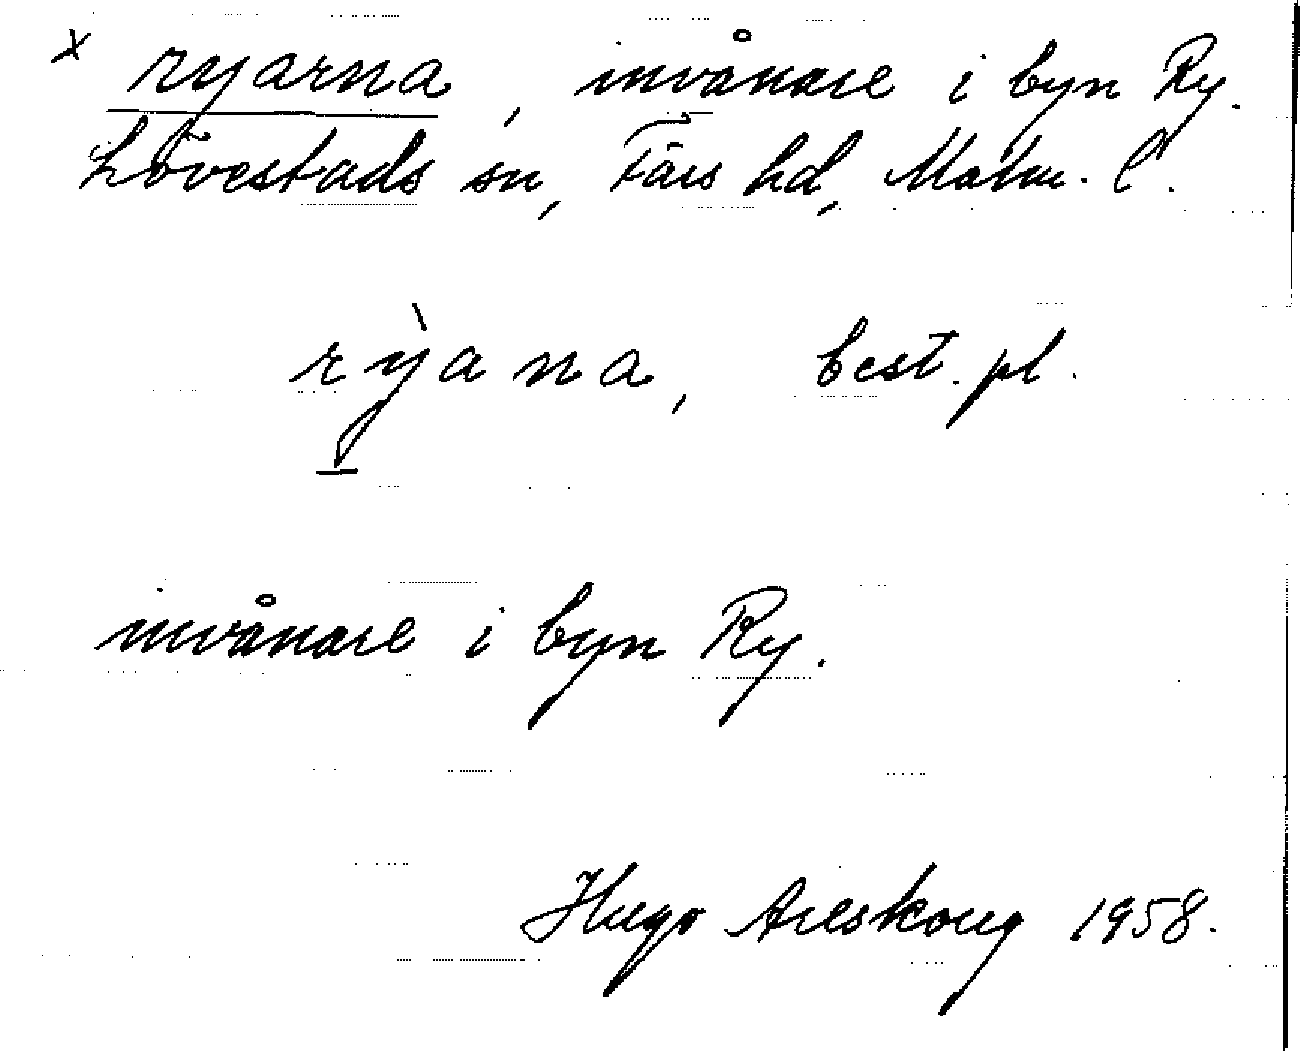 x ryarna, invånare i byn Ry.
Lövestads sn, Färs hd, Malm. l.
rỳana, best. pl.
invånare i byn Ry.
Hugo Areskoug 1958.